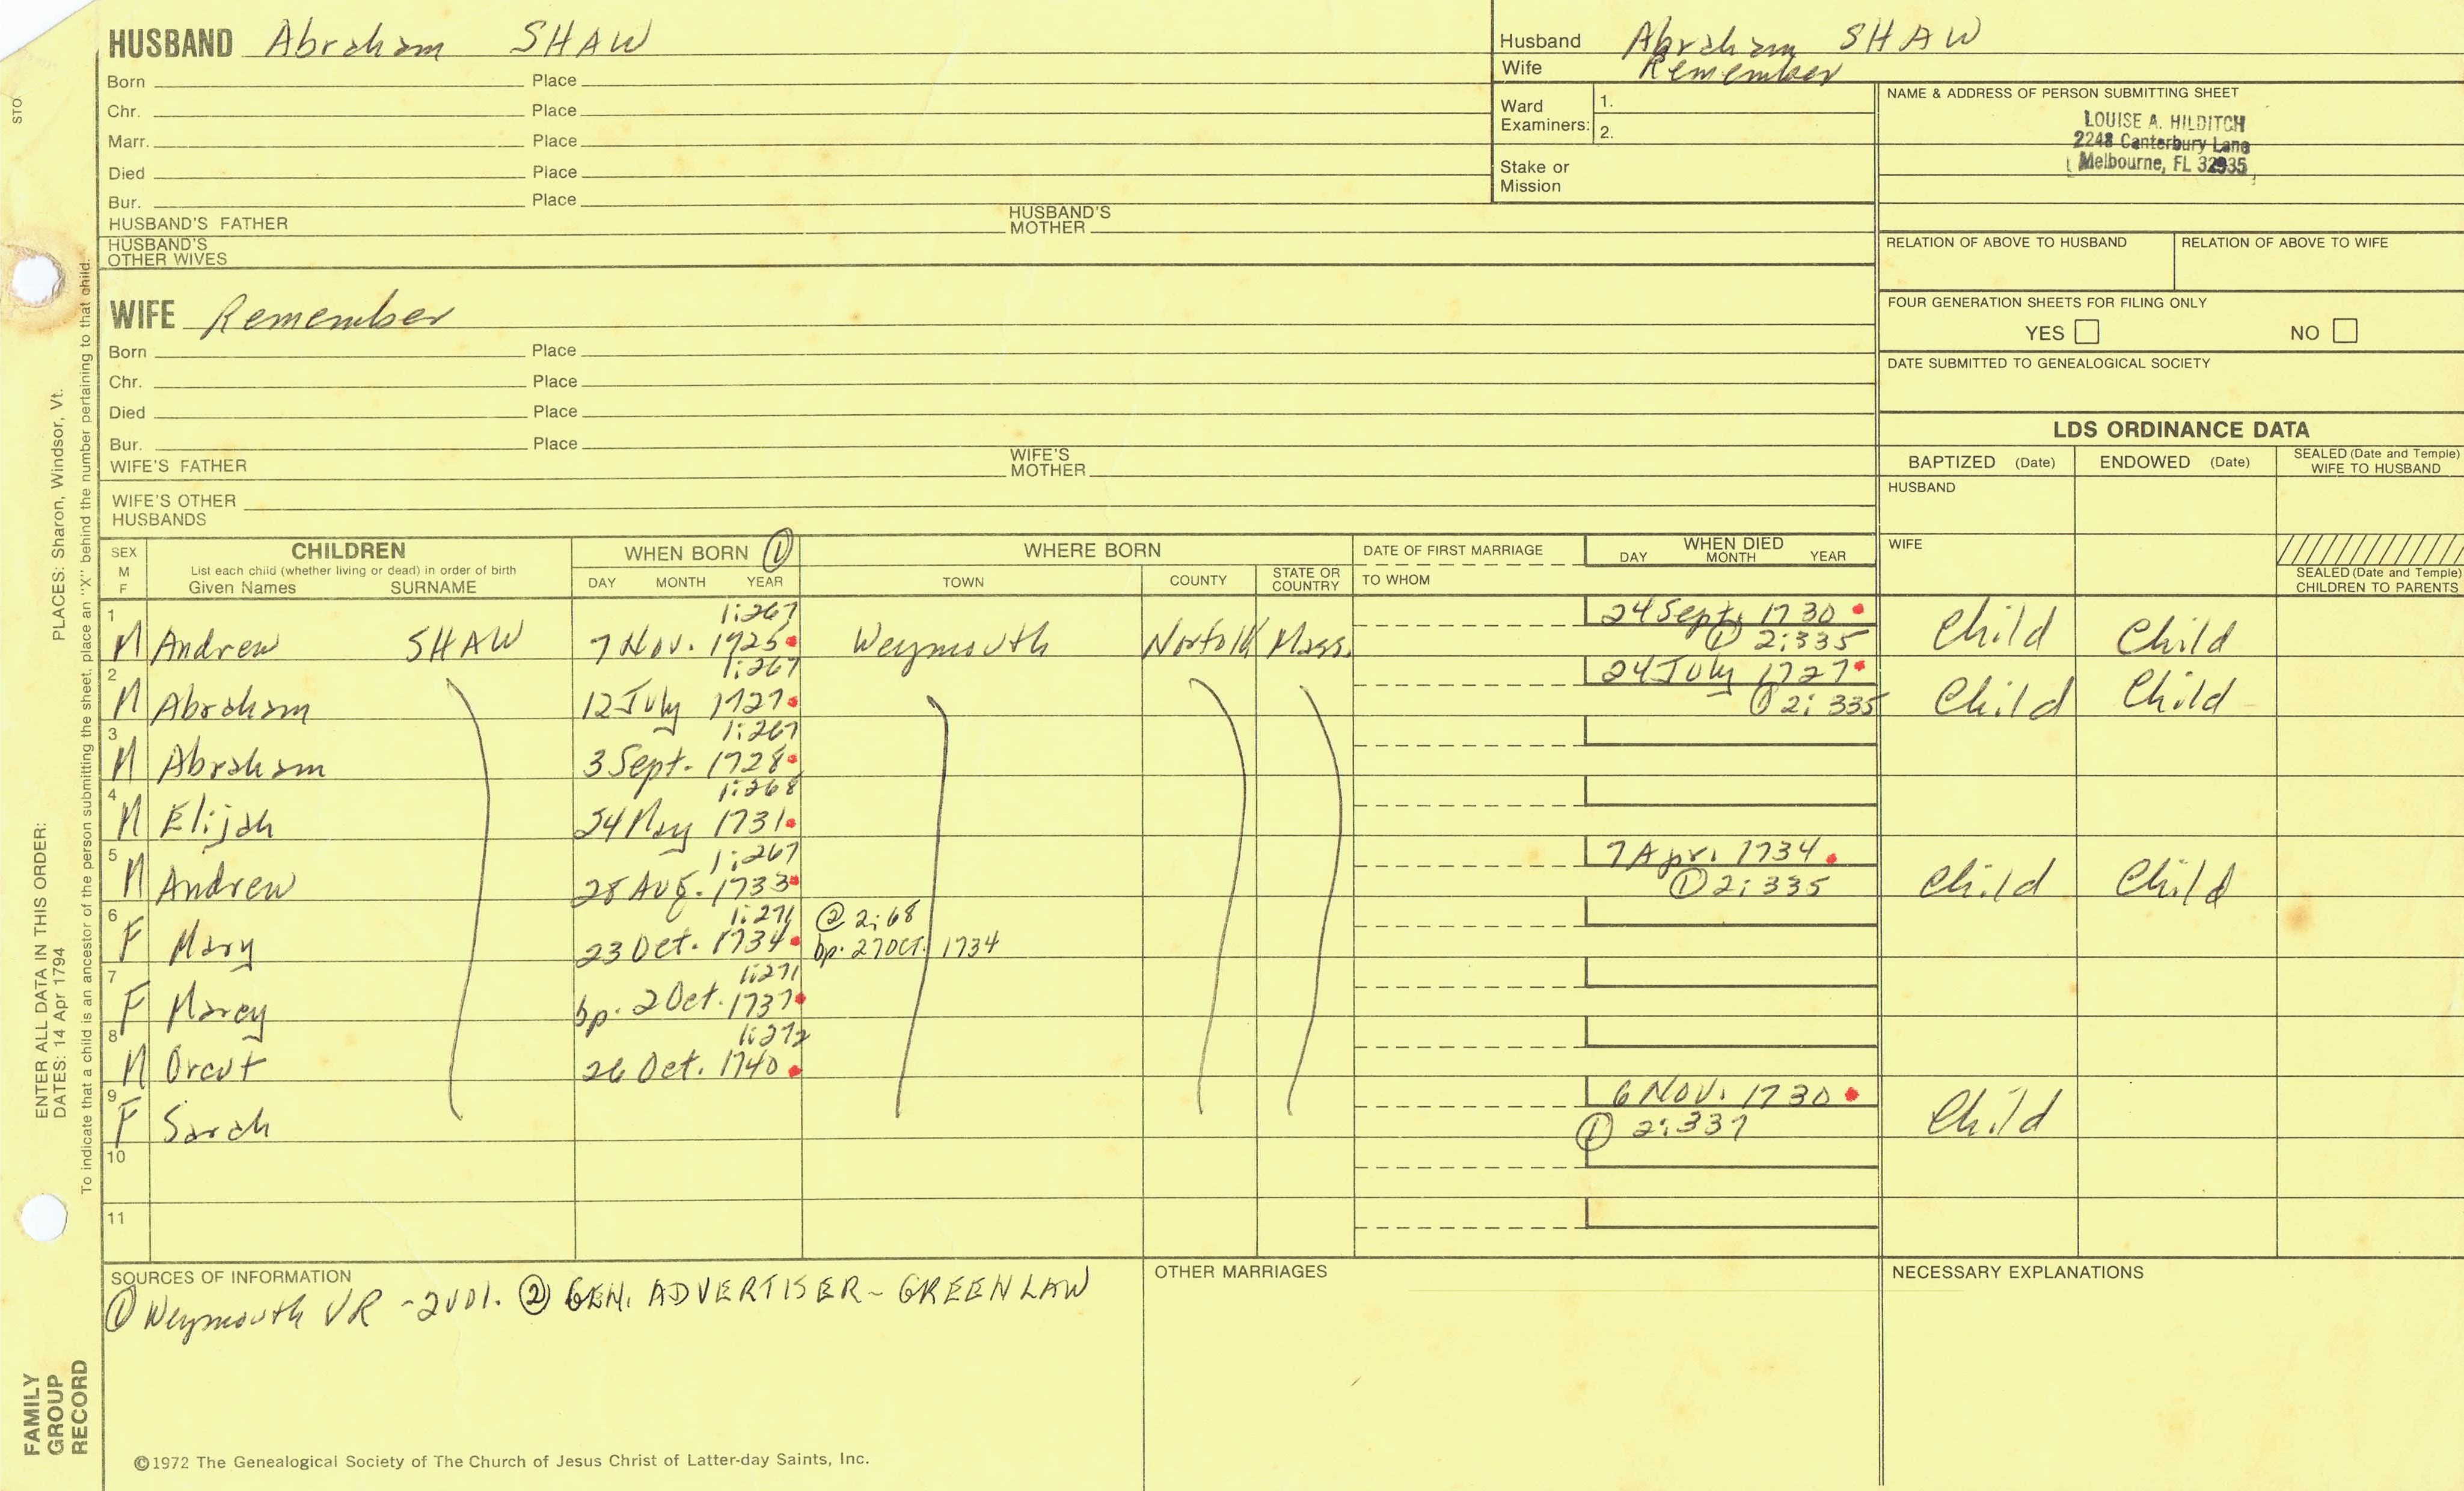 HUSBAND Abraham SHAW
Born Place
Chr. Place
Marr. Place
Died Place
Bur. Place
HUSBAND'S FATHER HUSBAND'S MOTHER
HUSBAND'S OTHER WIVES
Husband Abraham SHAW
Wife Remember
Ward Examiners: 1.
2.
Stake or Mission
NAME & ADDRESS OF PERSON SUBMITTING SHEET
LOUISE A. HILDITCH
2248 Canterbury Lane
Melbourne, FL 32935
RELATION OF ABOVE TO HUSBAND RELATION OF ABOVE TO WIFE
FOUR GENERATION SHEETS FOR FILING ONLY
YES NO
DATE SUBMITTED TO GENEALOGICAL SOCIETY
WIFE Remember
Born Place
Chr. Place
Died Place
Bur. Place
WIFE'S FATHER WIFE'S MOTHER
WIFE'S OTHER HUSBANDS
LDS ORDINANCE DATA
BAPTIZED (Date) ENDOWED (Date) SEALED (Date and Temple) WIFE TO HUSBAND
HUSBAND
WIFE
SEALED (Date and Temple) CHILDREN TO PARENTS
SEX M F
CHILDREN
List each child (whether living or dead) in order of birth
Given Names SURNAME
WHEN BORN ①
DAY MONTH YEAR
WHERE BORN
TOWN COUNTY STATE OR COUNTRY
DATE OF FIRST MARRIAGE
TO WHOM
WHEN DIED
DAY MONTH YEAR
1 1:267 24 Sept. 1730
M Andrew SHAW 7 Nov. 1725 Weymouth Norfolk Mass. ① 2:335 Child Child
2 1:267 24 July 1727
M Abraham 12 July 1727 ① 2:335 Child Child
3 1:267
M Abraham 3 Sept. 1728
4 1:268
M Elijah 24 May 1731
5 1:267 7 Apr. 1734
M Andrew 28 Aug. 1733 ① 2:335 Child Child
6 1:271 ② 2:68
F Mary 23 Oct. 1734 bp. 27 OCT. 1734
7 1:271
F Marey bp. 2 Oct. 1737
8 1:272
M Orcut 26 Oct. 1740
9 6 NOV. 1730
F Sarah ① 2:337 Child
10
11
SOURCES OF INFORMATION
① Weymouth VR - 2 vol. ② GEN. ADVERTISER - GREENLAW
OTHER MARRIAGES
NECESSARY EXPLANATIONS
©1972 The Genealogical Society of The Church of Jesus Christ of Latter-day Saints, Inc.
STO
ENTER ALL DATA IN THIS ORDER: PLACES: Sharon, Windsor, Vt.
DATES: 14 Apr 1794
To indicate that a child is an ancestor of the person submitting the sheet, place an "X" behind the number pertaining to that child.
FAMILY GROUP RECORD